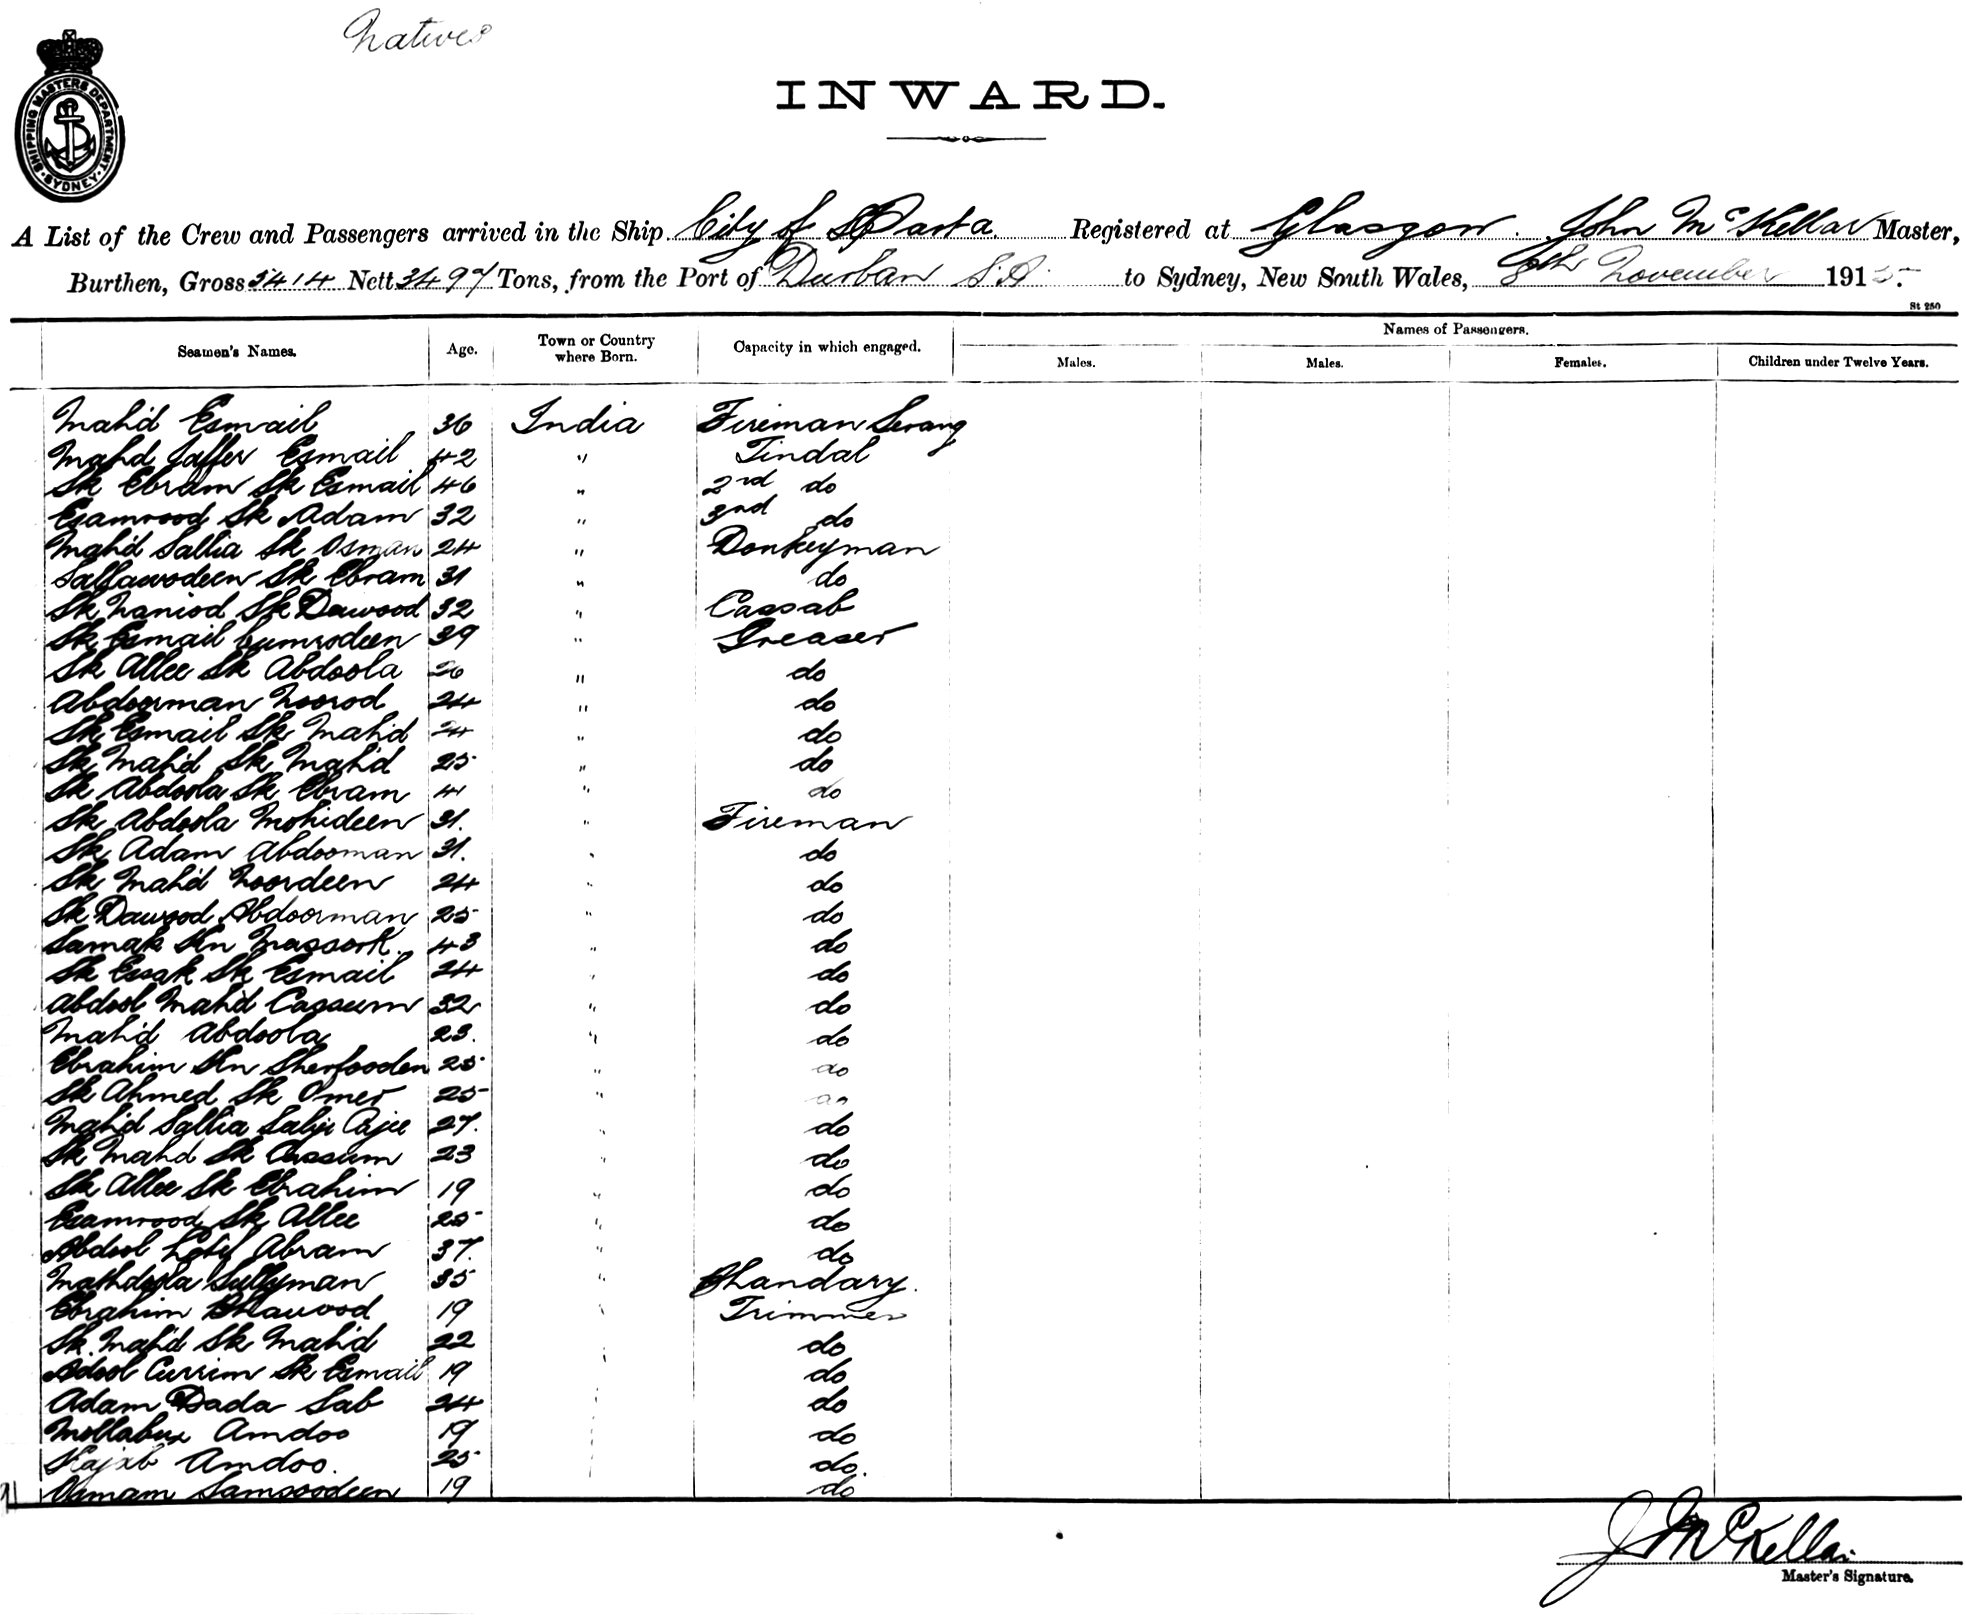 Natives
SHIPPING MASTERS DEPARTMENT
SYDNEY
INWARD.
A List of the Crew and Passengers arrived in the Ship City of Sparta Registered at Glasgow. John McKellar Master,
Burthen, Gross 5414 Nett 3497 Tons, from the Port of Durban S.A. to Sydney, New South Wales, 8th November 1915.
St 250
Seamen's Names. Age. Town or Country where Born. Capacity in which engaged. Names of Passengers.
Males. Males. Females. Children under Twelve Years.
Mahd Esmail 36 India Fireman Serang
Mahd Jaffer Esmail 42 " Tindal
Sk Ebram Sk Esmail 46 " 2nd do
Esamrood Sk Adam 32 " 3nd do
Mahd Sallia Sk Osman 24 " Donkeyman
Sallawodeen Sk Ebram 31 " do
Sk Naniod Sk Dawood 32 " Cassab
Sk Esmail Cumrodeen 39 " Greaser
Sk Allee Sk Abdoola 26 " do
Abdoorman Noorod 24 " do
Sk Esmail Sk Mahd 24 " do
Sk Mahd Sk Mahd 25 " do
Sk Abdoola Sk Ebram 41 " do
Sk Abdoola Mohideen 31. " Fireman
Sk Adam Abdooman 31. " do
Sk Mahd Noordeen 24 " do
Sk Dawood Abdoorman 25 " do
Samak Kn Massook. 43 " do
Sk Essak Sk Esmail 24 " do
Abdool Mahd Cassum 32 " do
Mahd Abdoola 23. " do
Ebrahim Kn Sherfooden 25 " do
Sk Ahmed Sk Omer 25 " do
Mahd Sallia Salije Ajee 27. " do
Sk Mahd Sk Cassum 23 " do
Sk Allee Sk Ebrahim 19 " do
Esamrood Sk Allee 25 " do
Abdool Abram 37. " do
Mathdoola Sullyman 35 " Bhandary.
Ebrahim Dhawood 19 " Trimmer
Sk Mahd Sk Mahd 22 " do
Adool Currim Sk Esmail 19 do
Adam Dada Sab 24 do
Mollabux Amdoo 19 do
Amdoo. 25 do.
Osmam Samsoodeen 19 do
J McKellar
Master's Signature.